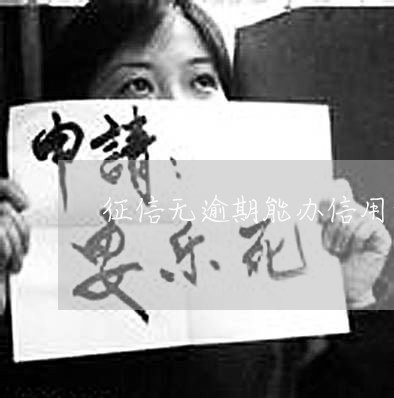 申請：
征信无逾期能办信用
安乐死